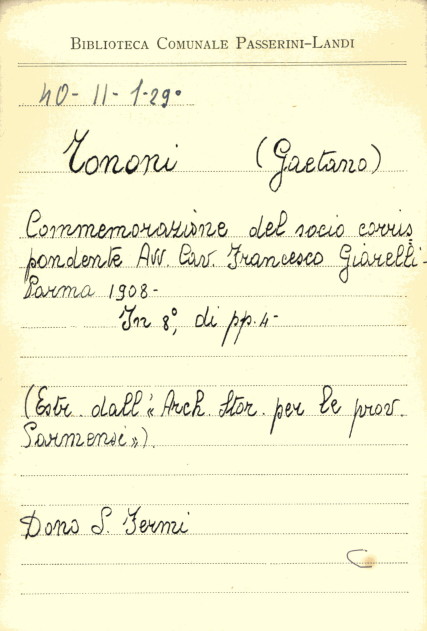 BIBLIOTECA COMUNALE PASSERINI-LANDI
40-II-1-29°
Tononi (Gaetano)
Commemorazione del socio corris
pondente Avv. Cav. Francesco Giarelli-
Parma 1908-
In 8°, di pp. 4-
(Estr. dall'« Arch. Stor. per le prov.
Parmensi»).
Dono S. Fermi